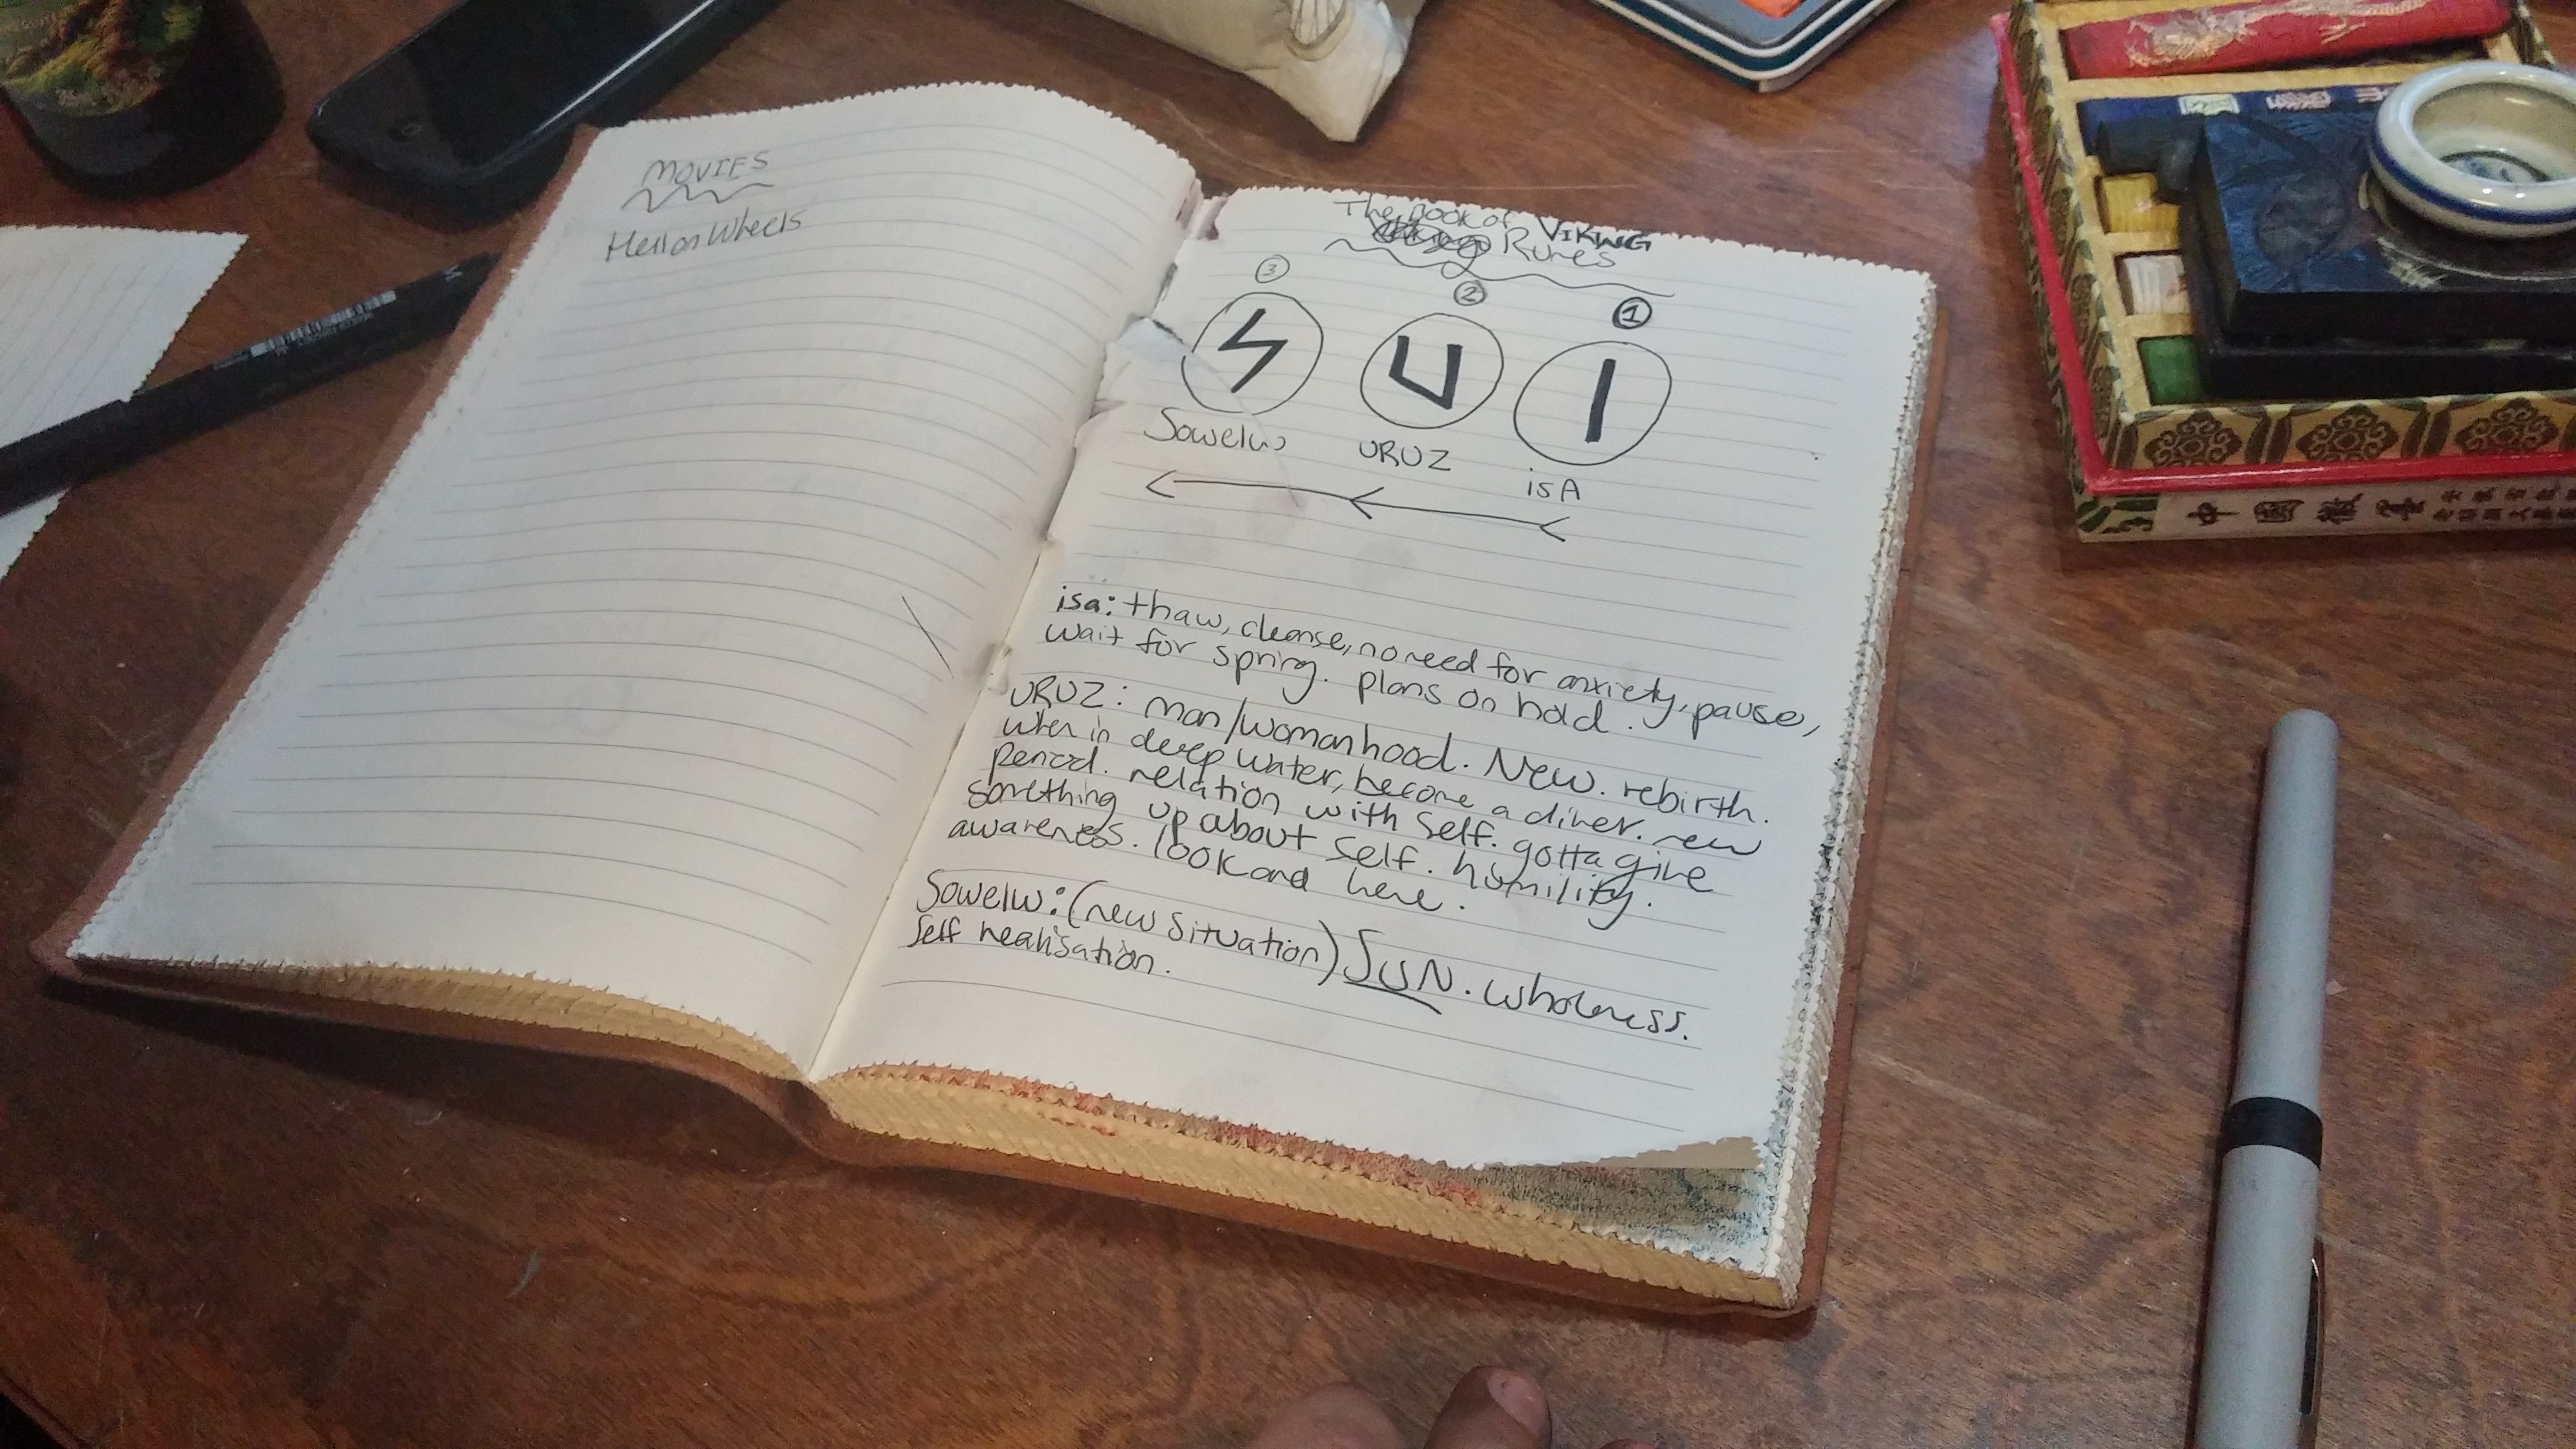 MOVIES
Hell on Wheels
The Book of VIKING
Runes
③ ② ①
Sowelu URUZ isA
isa: thaw, cleanse, no need for anxiety, pause,
wait for spring. plans on hold.
URUZ: man/womanhood. New. rebirth.
when in deep water, become a diver. new
period. relation with self. gotta give
something up about self. humility.
awareness. look and here.
Sowelw: (new situation) SUN. wholeness.
self realisation.
中國徽墨